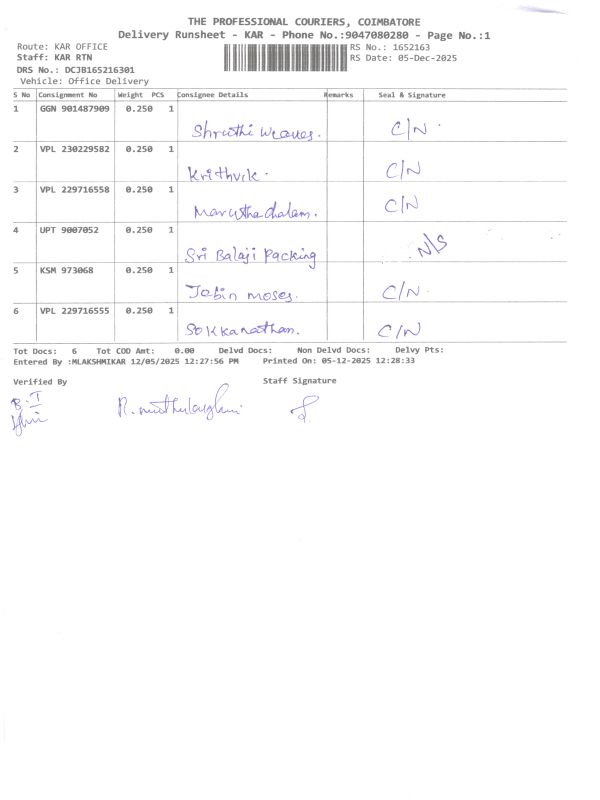 THE PROFESSIONAL COURIERS, COIMBATORE
Delivery Runsheet - KAR - Phone No.:9047080280 - Page No.:1
Route: KAR OFFICE RS No.: 1652163
Staff: KAR RTN RS Date: 05-Dec-2025
DRS No.: DCJB165216301
Vehicle: Office Delivery
S No Consignment No Weight PCS Consignee Details Remarks Seal & Signature
1 GGN 901487909 0.250 1
Shruthi Weaves. C/N.
2 VPL 230229582 0.250 1
Krithvik. C/N
3 VPL 229716558 0.250 1
Maruthachalam. C/N
4 UPT 9007052 0.250 1
Sri Balaji Packing N/S
5 KSM 973068 0.250 1
Jebin Moses. C/N.
6 VPL 229716555 0.250 1
Sokkanathan. C/N
Tot Docs: 6 Tot COD Amt: 0.00 Delvd Docs: Non Delvd Docs: Delvy Pts:
Entered By :MLAKSHMIKAR 12/05/2025 12:27:56 PM Printed On: 05-12-2025 12:28:33
Verified By Staff Signature